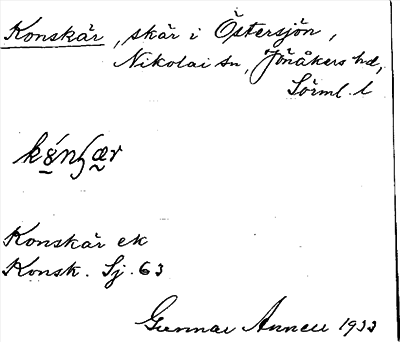 Konskär, skär i Östersjön,
Nikolai sn, Jönåkers hd,
Sörml. l
Konskär ek
Konsk. Sj. 63
Gunnar Annell 1933